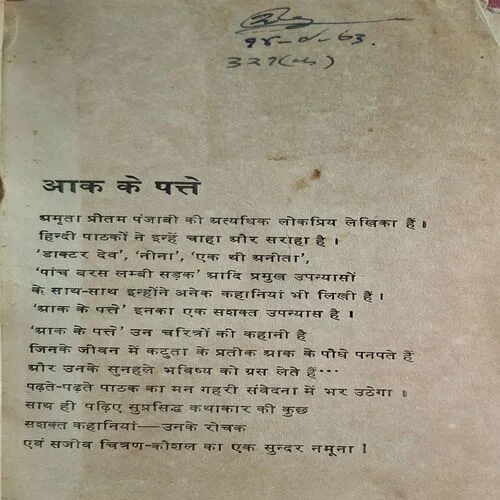 ३२१(क)
आक के पत्ते
अमृता प्रीतम पंजाबी की अत्यधिक लोकप्रिय लेखिका हैं।
हिन्दी पाठकों ने इन्हें चाहा और सराहा है।
'डाक्टर देव', 'नीना', 'एक थी अनीता',
'पांच बरस लम्बी सड़क' आदि प्रमुख उपन्यासों
के साथ-साथ इन्होंने अनेक कहानियां भी लिखी हैं।
'आक के पत्ते' इनका एक सशक्त उपन्यास है।
'आक के पत्ते' उन चरित्रों की कहानी है
जिनके जीवन में कटुता के प्रतीक आक के पौधे पनपते हैं
और उनके सुनहले भविष्य को ग्रस लेते हैं···
पढ़ते-पढ़ते पाठक का मन गहरी संवेदना में भर उठेगा।
साथ ही पढ़िए सुप्रसिद्ध कथाकार की कुछ
सशक्त कहानियां—उनके रोचक
एवं सजीव चित्रण-कौशल का एक सुन्दर नमूना।